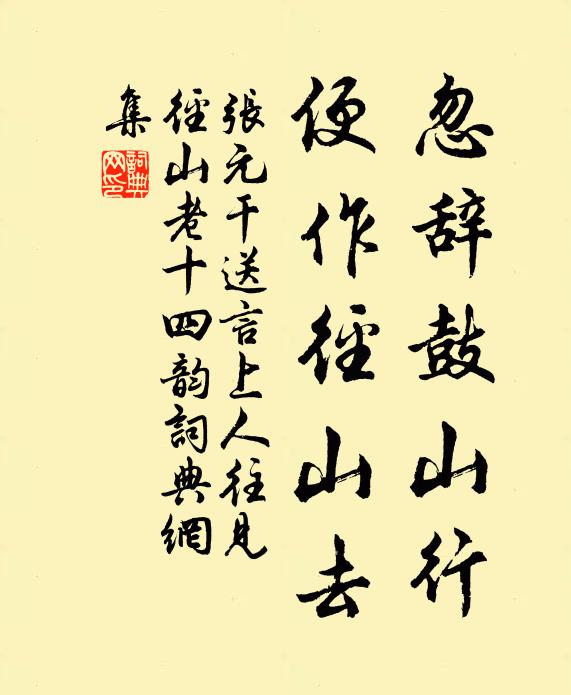 忽辞鼓山行
便作徑山去
張元干送言上人往見
徑山老十四韵詞典網
集
詞典網印